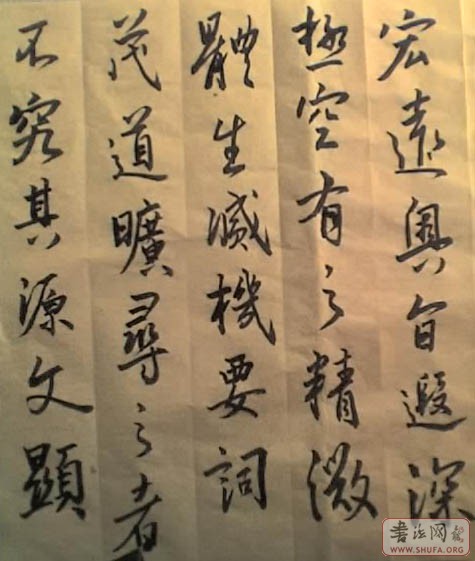 宏遠奧旨遐深
極空有之精微
體生滅機要詞
茂道曠尋之者
不究其源文顯
書法网
WWW.SHUFA.ORG